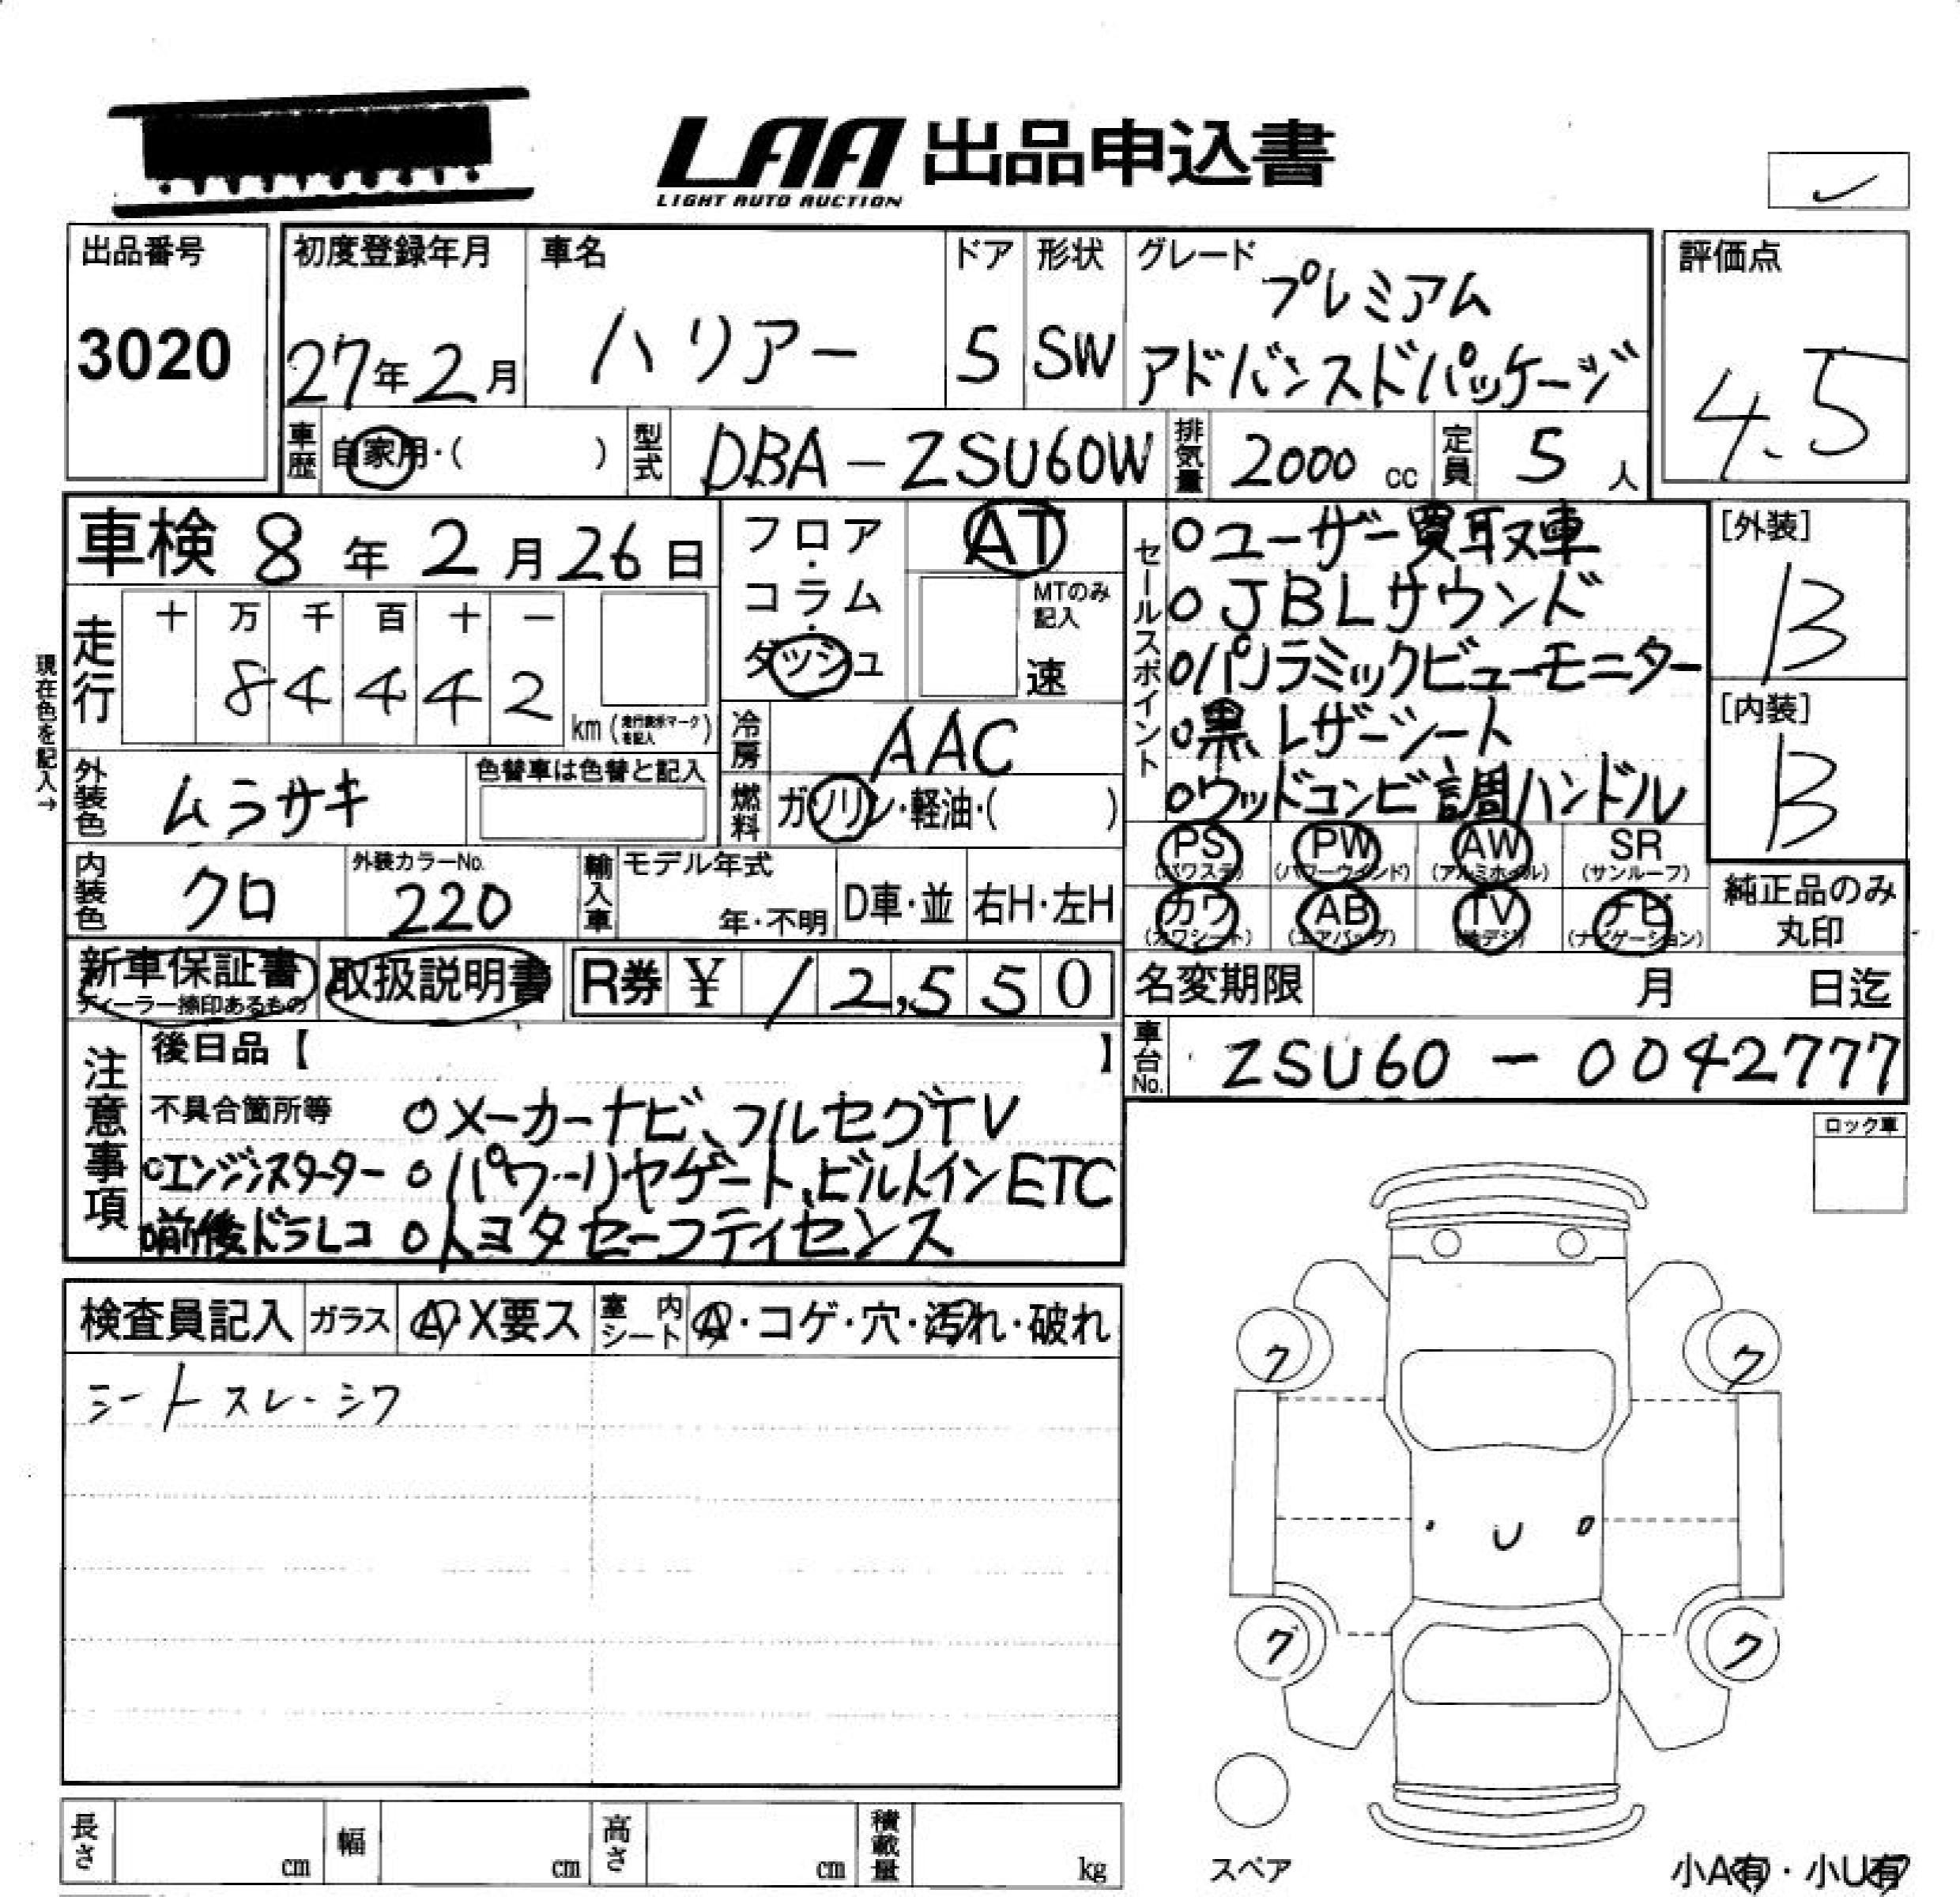 LAA 出品申込書
LIGHT AUTO AUCTION
出品番号
3020
初度登録年月
27年2月
車名
ハリアー
ドア
5
形状
SW
グレード
プレミアム
アドバンスドパッケージ
評価点
4.5
車歴
自家用・( )
型式
DBA-ZSU60W
排気量
2000 cc
定員
5 人
車検 8年2月26日
フロア・コラム・ダッシュ
AT
MTのみ記入
速
走行
十 万 千 百 十 一
8 4 4 4 2
km (走行表示マークを記入)
現在色を記入→
外装色
ムラサキ
色替車は色替と記入
冷房
AAC
燃料
ガソリン・軽油・( )
内装色
クロ
外装カラーNo.
220
輸入車
モデル年式
年・不明
D車・並
右H・左H
セールスポイント
○ユーザー買取車
○JBLサウンド
○パノラミックビューモニター
○黒レザーシート
○ウッドコンビ調ハンドル
[外装]
B
[内装]
B
PS (パワステ)
PW (パワーウインド)
AW (アルミホイル)
SR (サンルーフ)
カワ (カワシート)
AB (エアバッグ)
TV (地デジ)
ナビ (ナビゲーション)
純正品のみ
丸印
新車保証書
ディーラー捺印あるもの
取扱説明書
R券 ¥ 12,550
名変期限 月 日迄
車台No.
ZSU60-0042777
注意事項
後日品【 】
不具合箇所等
○メーカーナビ、フルセグTV
○エンジンスターター ○パワーリヤゲート、ビルトインETC
○前後ドラレコ ○トヨタセーフティセンス
ロック車
検査員記入
ガラス
A・X要ス
室内シート
・コゲ・穴・汚れ・破れ
シートスレ・シワ
ク
ク
U
ク
ク
スペア
長さ cm
幅 cm
高さ cm
積載量 kg
小A有・小U有